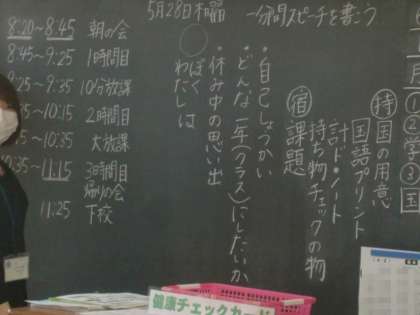 8:20～8:45 朝の会
8:45～9:25 1時間目
9:25～9:35 10分放課
9:35～10:15 2時間目
10:15～10:35 大放課
10:35～11:15 3時間目
帰りの会
11:25 下校
5月28日木曜
一分間スピーチを書こう
・自己しょうかい
・どんな一年(クラス)にしたいか
・休み中の思い出
ぼく
わたしは
持
国の用意
国語プリント
計ド・ノート
持ち物チェックの物
宿
課題
①
②学
③国
健康チェックカード